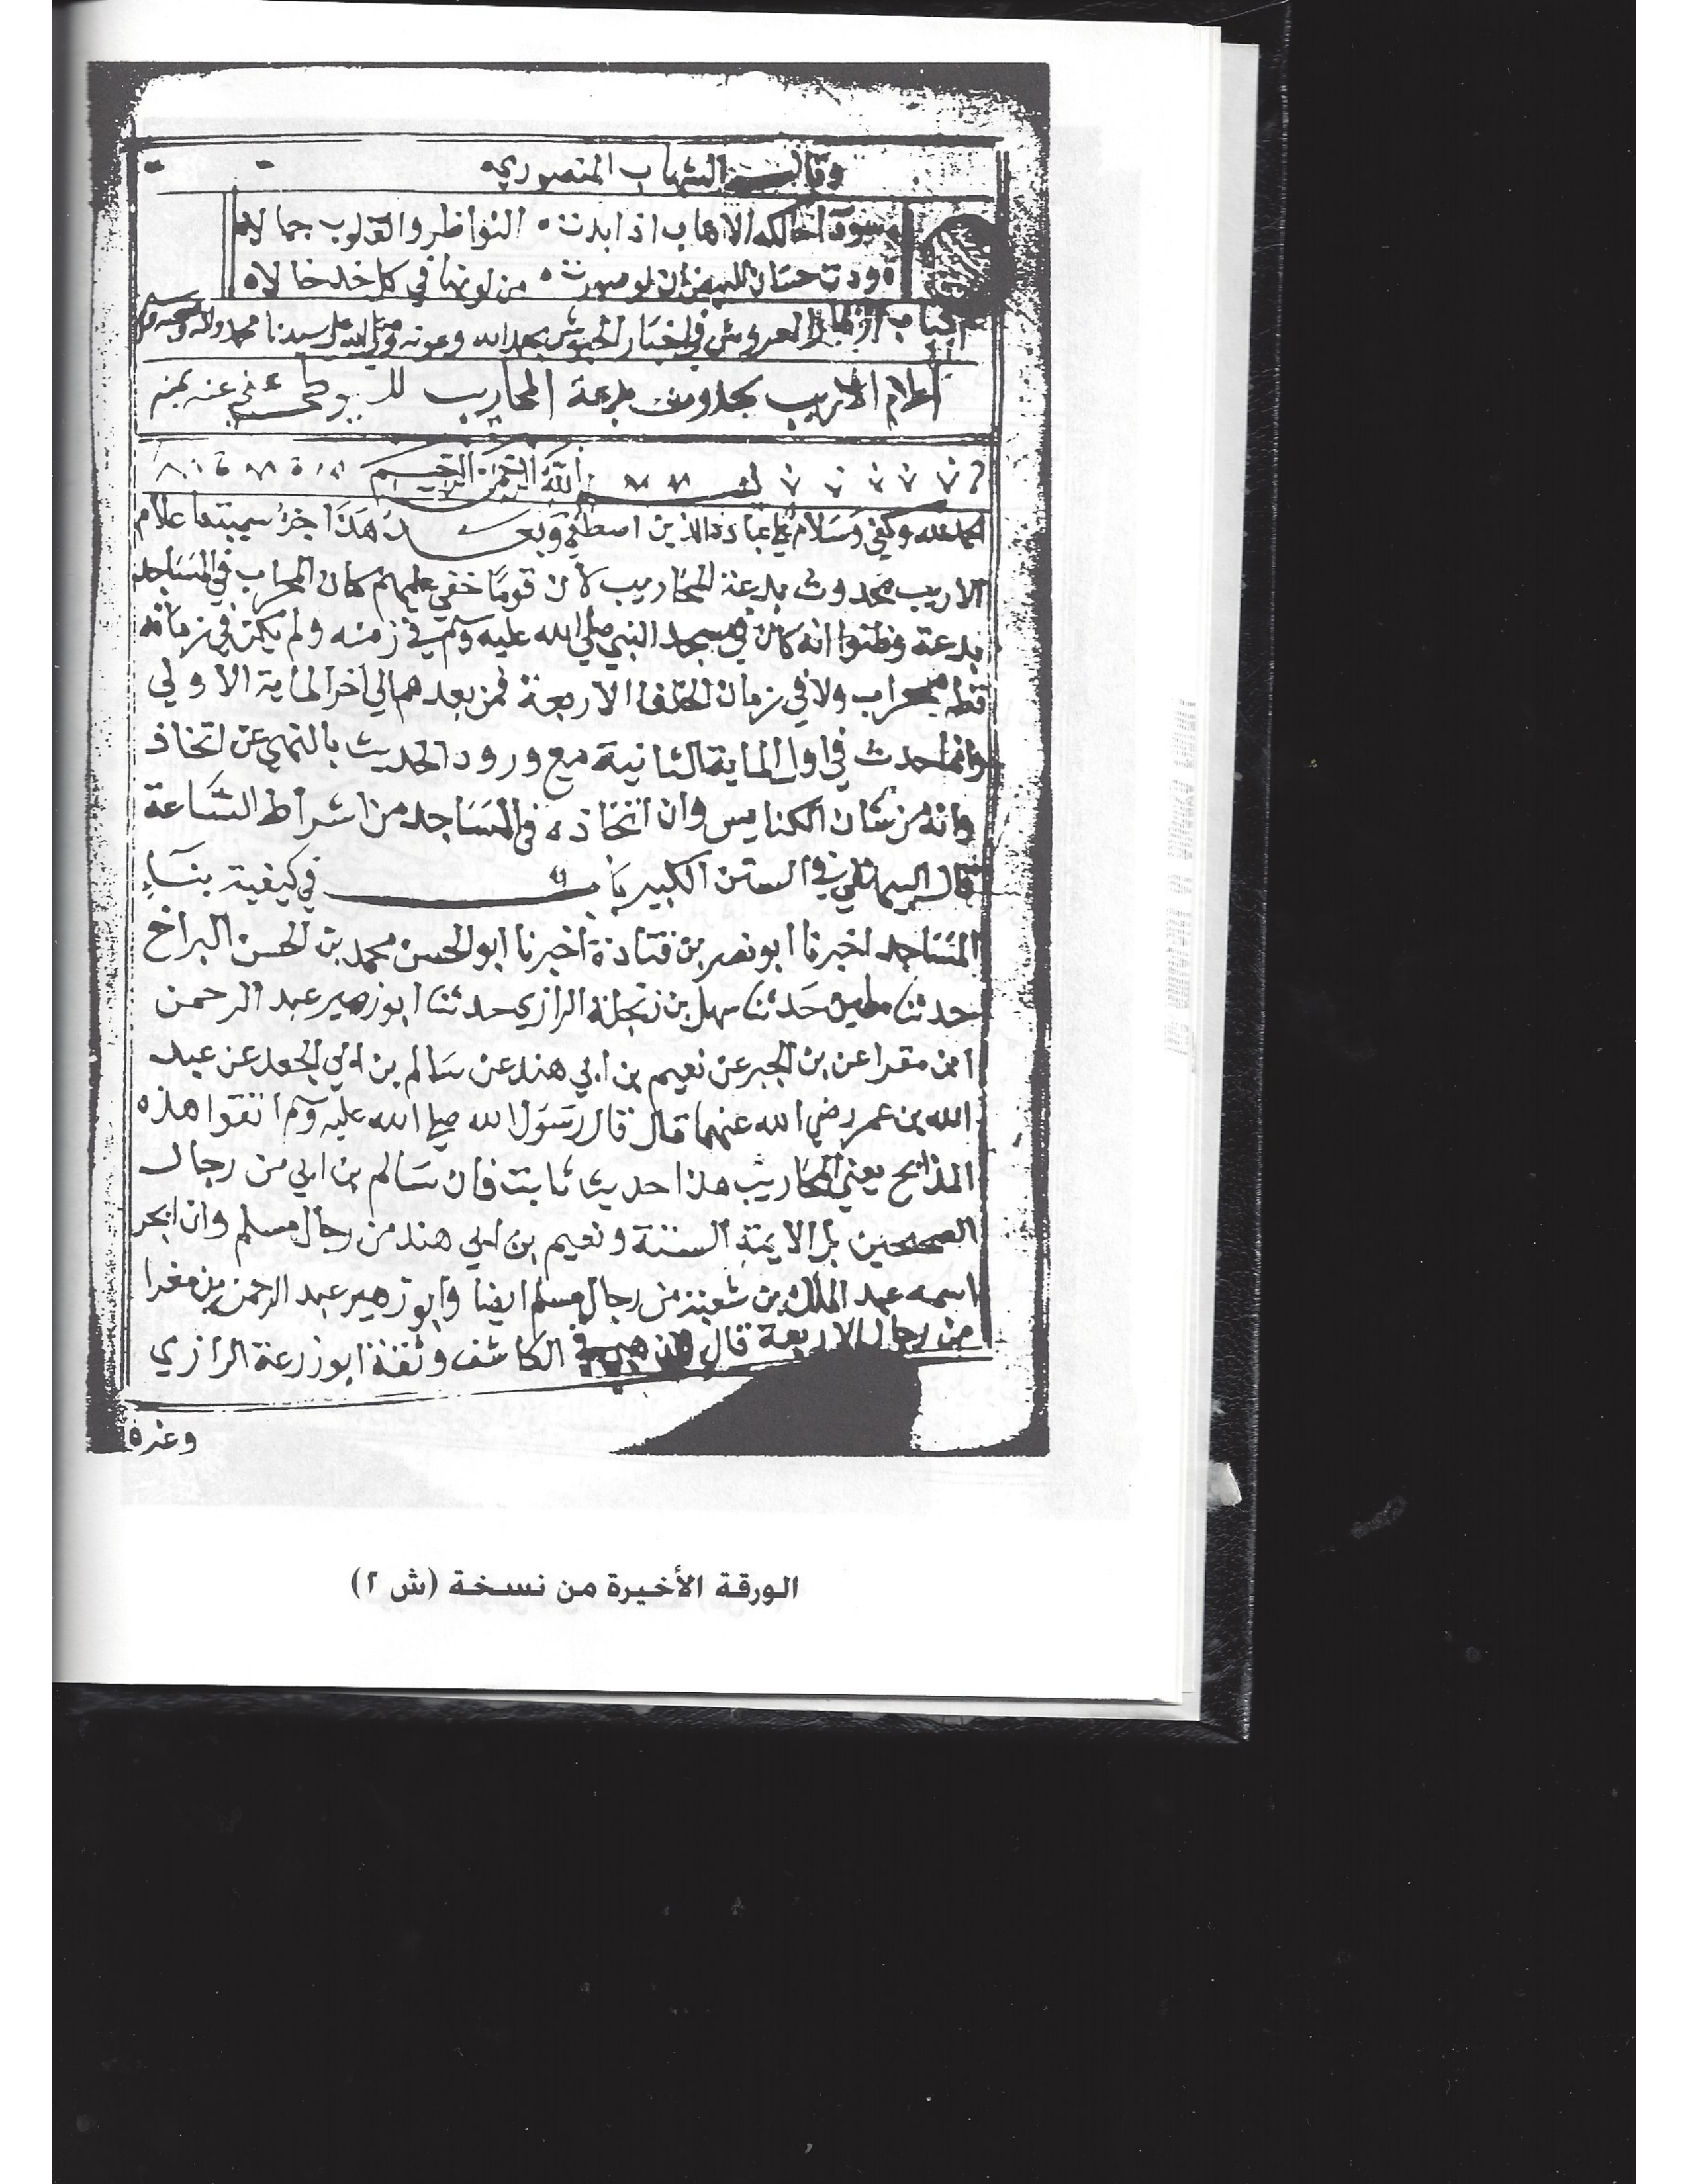 وقالــــ الشهاب المنصوري
وسودآ حالكه الاهاب اذا بدت ه النواظر والقلوب جمالاه
ه ودت حسان البيض ان لو صورت ه من لونها في كل خد خالاه
كتاب ازهار العروش في اخبار الحبوش بحمد الله وعونه وصلى الله على سيدنا محمد واله وصحبه وسلم
اعلام الاريب بحدوث بدعة المحاريب للسيوطي عفى عنه بمنه
بســــم الله الرحمن الرحيم
الحمد لله وكفي وسلام علي عباده الذين اصطفي وبعــــد هذا جزء سميته اعلام
الاريب بحدوث بدعة المحاريب لان قوما خفي عليهم كان المحراب في المساجد
بدعة وظنوا انه كان في مسجد النبي صلي الله عليه وسلم في زمنه ولم يكن في زمانه
قط محراب ولا في زمان الخلفا الاربعة فمن بعدهم الي اخر الماية الاولي
وانما حدث في اول الماية الثانية مع ورود الحديث بالنهي عن اتخاذ
وانه من شان الكنايس وان اتخاذه في المساجد من اشراط الساعة
قال البيهقي في السنن الكبير بـــــاب في كيفية بناء
المساجد اخبرنا ابو نصر بن قتادة اخبرنا ابو الحسن محمد بن الحسن البراخ
حدثنا مطين حدثنا سهل بن زنجلة الرازي حدثنا ابو زهير عبد الرحمن
ابن مقرا عن بن ابجر عن نعيم بن ابي هند عن سالم بن ابي الجعد عن عبد
الله بن عمر رضي الله عنهما قال قال رسول الله صلي الله عليه وسلم اتقوا هذه
المذابح يعني المحاريب هذا حديث ثابت فان سالم بن ابي من رجال
الصحيحين بل الايمة الستة ونعيم بن ابي هند من رجال مسلم وابن ابجر
اسمه عبد الملك بن شعبة من رجال مسلم ايضا وابو زهير عبد الرحمن بن مغرا
من رجال الاربعة قال الذهبي في الكاشف وثقة ابو زرعة الرازي
وغيره
الورقة الأخيرة من نسخة (ش ٢)